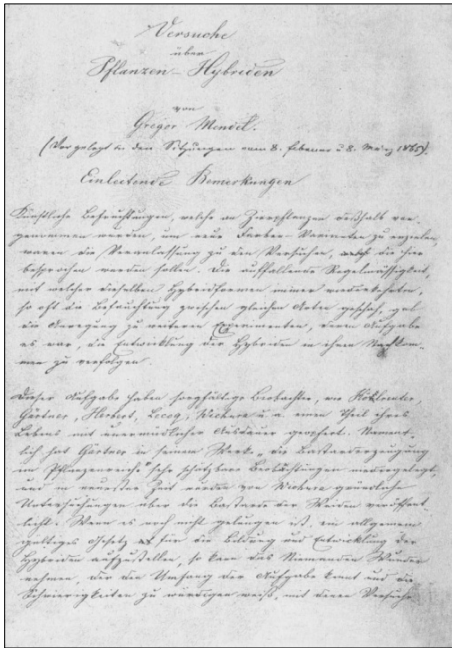 Versuche
über
Pflanzen-Hybriden
von
Gregor Mendel.
(Vorgelegt in den Sitzungen vom 8. Februar u 8. März 1865).
Einleitende Bemerkungen
Künstliche Befruchtungen, welche an Zierpflanzen deßhalb vor-
genommen wurden, um neue Farben-Varianten zu erzielen,
waren die Veranlassung zu den Versuchen, die hier
besprochen werden sollen. Die auffallende Regelmässigkeit,
mit welcher dieselben Hybridformen immer wiederkehrten,
so oft die Befruchtung zwischen gleichen Arten geschah, gab
die Anregung zu weiteren Experimenten, deren Aufgabe
es war, die Entwicklung der Hybriden in ihren Nachkom-
men zu verfolgen.
Dieser Aufgabe haben sorgfältige Beobachter, wie Kölreuter,
Gärtner, Herbert, Lecoq, Wichura u. a. einen Theil ihres
Lebens mit unermüdlicher Ausdauer geopfert. Nament-
lich hat Gärtner in seinem Werke „die Bastarderzeugung
im Pflanzenreiche" sehr schätzbare Beobachtungen niedergelegt,
und in neuester Zeit wurden von Wichura gründliche
Untersuchungen über die Bastarde der Weiden veröffent-
licht. Wenn es noch nicht gelungen ist, ein allgemein
giltiges Gesetz für die Bildung und Entwicklung der
Hybriden aufzustellen, so kann das Niemanden Wunder
nehmen, der den Umfang der Aufgabe kennt und die
Schwierigkeiten zu würdigen weiß, mit denen Versuche